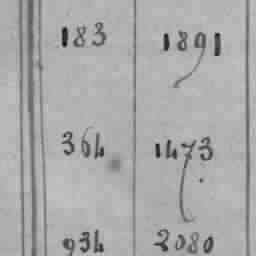 183 1891
364 1473
934 2080